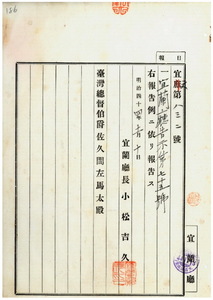 186
報日
宜庶第八三二號
一宜蘭廳告示第七十五號
右報告例ニ依リ報告ス
明治四十四年十月十日
宜蘭廳長小松吉久
臺灣總督伯爵佐久間左馬太殿
宜蘭廳